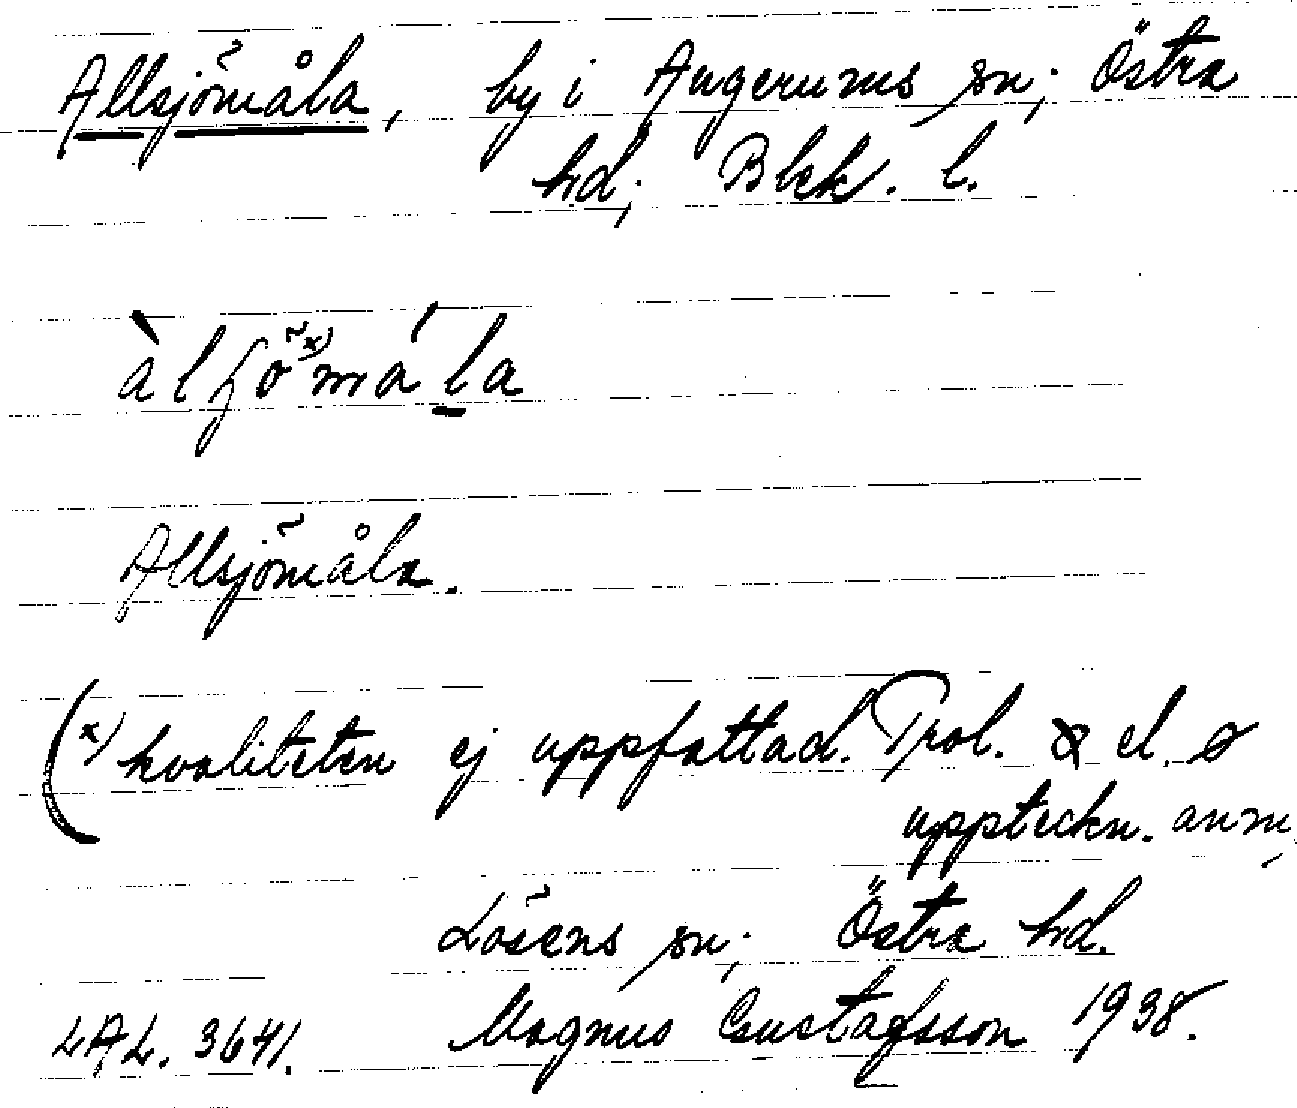 Allsjömåla, by i Augerums sn; Östra
hd; Blek. l.
Allsjömåla.
(x) kvaliteten ej uppfattad. Trol. el. ø
uppteckn. anm.
Lösens sn; Östra hd.
LAL. 3641. Magnus Gustafsson 1938.